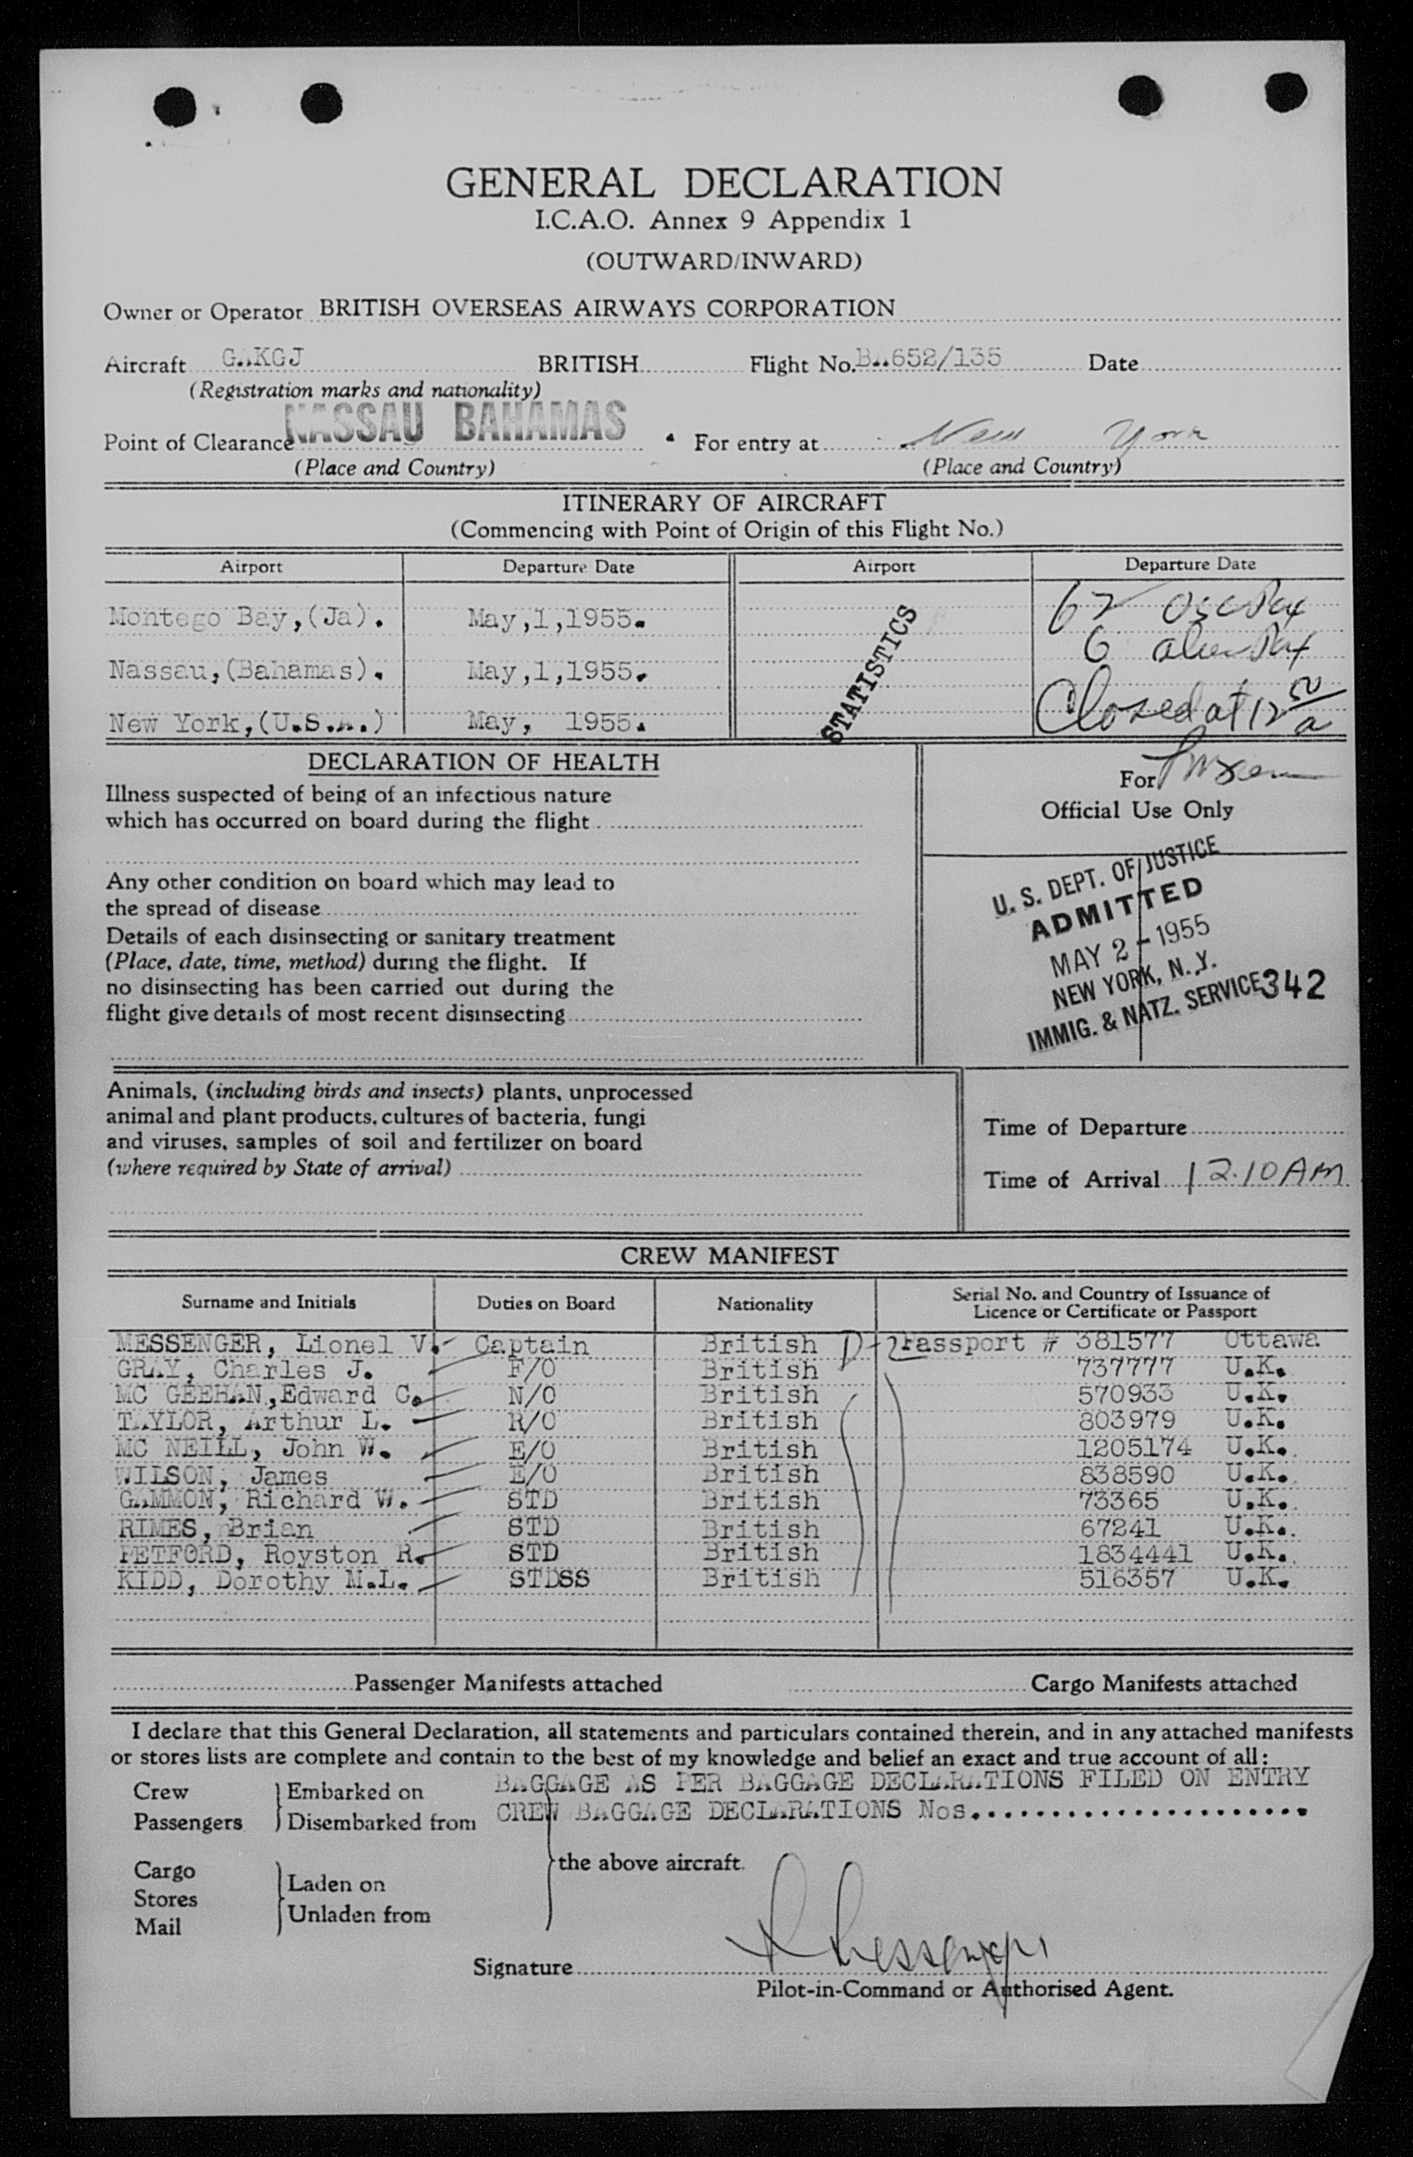 GENERAL DECLARATION
I.C.A.O. Annex 9 Appendix 1
(OUTWARD/INWARD)
Owner or Operator BRITISH OVERSEAS AIRWAYS CORPORATION
Aircraft GAKGJ BRITISH Flight No. BA.652/135 Date
(Registration marks and nationality)
Point of Clearance NASSAU BAHAMAS For entry at New York
(Place and Country) (Place and Country)
ITINERARY OF AIRCRAFT
(Commencing with Point of Origin of this Flight No.)
Airport Departure Date Airport Departure Date
Montego Bay,(Ja). May,1,1955. 62 Pax
Nassau,(Bahamas). May,1,1955. 6 alien Pax
New York,(U.S.A.) May, 1955. STATISTICS Closed at 12
DECLARATION OF HEALTH
For
Official Use Only
Illness suspected of being of an infectious nature
which has occurred on board during the flight
Any other condition on board which may lead to
the spread of disease
Details of each disinsecting or sanitary treatment
(Place, date, time, method) during the flight. If
no disinsecting has been carried out during the
flight give details of most recent disinsecting
U. S. DEPT. OF JUSTICE
ADMITTED
MAY 2 - 1955
NEW YORK, N. Y.
IMMIG. & NATZ. SERVICE 342
Animals, (including birds and insects) plants, unprocessed
animal and plant products, cultures of bacteria, fungi
and viruses, samples of soil and fertilizer on board
(where required by State of arrival)
Time of Departure
Time of Arrival 12.10 AM
CREW MANIFEST
Surname and Initials Duties on Board Nationality Serial No. and Country of Issuance of
Licence or Certificate or Passport
MESSENGER, Lionel V. Captain British D-2 Passport # 381577 Ottawa
GRAY, Charles J. F/O British 737777 U.K.
MC GEEHAN,Edward C. N/O British 570933 U.K.
TAYLOR, Arthur L. R/O British 803979 U.K.
MC NEILL, John W. E/O British 1205174 U.K.
WILSON, James E/O British 838590 U.K.
GAMMON, Richard W. STD British 73365 U.K.
RIMES, Brian STD British 67241 U.K.
PETFORD, Royston R. STD British 1834441 U.K.
KIDD, Dorothy M.L. STDSS British 516357 U.K.
Passenger Manifests attached Cargo Manifests attached
I declare that this General Declaration, all statements and particulars contained therein, and in any attached manifests
or stores lists are complete and contain to the best of my knowledge and belief an exact and true account of all:
BAGGAGE AS PER BAGGAGE DECLARATIONS FILED ON ENTRY
Crew Embarked on
CREW BAGGAGE DECLARATIONS Nos.....................
Passengers Disembarked from
the above aircraft.
Cargo
Laden on
Stores
Unladen from
Mail
Signature L Messenger
Pilot-in-Command or Authorised Agent.